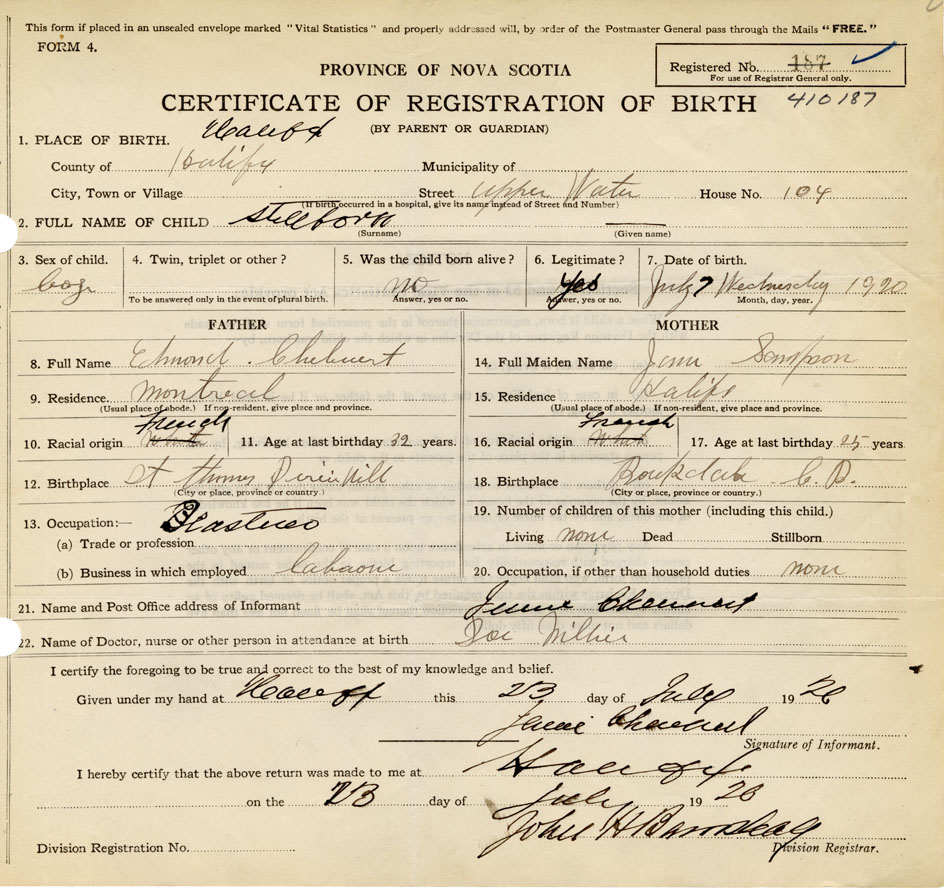 This form if placed in an unsealed envelope marked "Vital Statistics" and properly addressed will, by order of the Postmaster General pass through the Mails "FREE."
FORM 4.
Registered No. 187
For use of Registrar General only.
PROVINCE OF NOVA SCOTIA
CERTIFICATE OF REGISTRATION OF BIRTH 410187
(BY PARENT OR GUARDIAN)
1. PLACE OF BIRTH. Halifax
County of Halifx Municipality of
City, Town or Village Street Upper Water House No. 104
(If birth occurred in a hospital, give its name instead of Street and Number)
2. FULL NAME OF CHILD Stillborn
(Surname) (Given name)
3. Sex of child. 4. Twin, triplet or other? 5. Was the child born alive? 6. Legitimate? 7. Date of birth.
boy no Yes July 7 Wednesday 1920
To be answered only in the event of plural birth. Answer, yes or no. Answer, yes or no. Month, day, year.
FATHER MOTHER
8. Full Name Edmond 14. Full Maiden Name Sampson
9. Residence. Montreal 15. Residence
(Usual place of abode.) If non-resident, give place and province. (Usual place of abode.) If non-resident, give place and province.
French French
10. Racial origin White 11. Age at last birthday 32 years. 16. Racial origin White 17. Age at last birthday 25 years
12. Birthplace St Thomas 18. Birthplace C. B.
(City or place, province or country.) (City or place, province or country.)
13. Occupation:— 19. Number of children of this mother (including this child.)
(a) Trade or profession Living none Dead Stillborn
(b) Business in which employed 20. Occupation, if other than household duties none
21. Name and Post Office address of Informant
22. Name of Doctor, nurse or other person in attendance at birth
I certify the foregoing to be true and correct to the best of my knowledge and belief.
Given under my hand at Halifax this 23 day of July 1920
Signature of Informant.
I hereby certify that the above return was made to me at Halifax
on the 23 day of July 1920
John H
Division Registration No. Division Registrar.